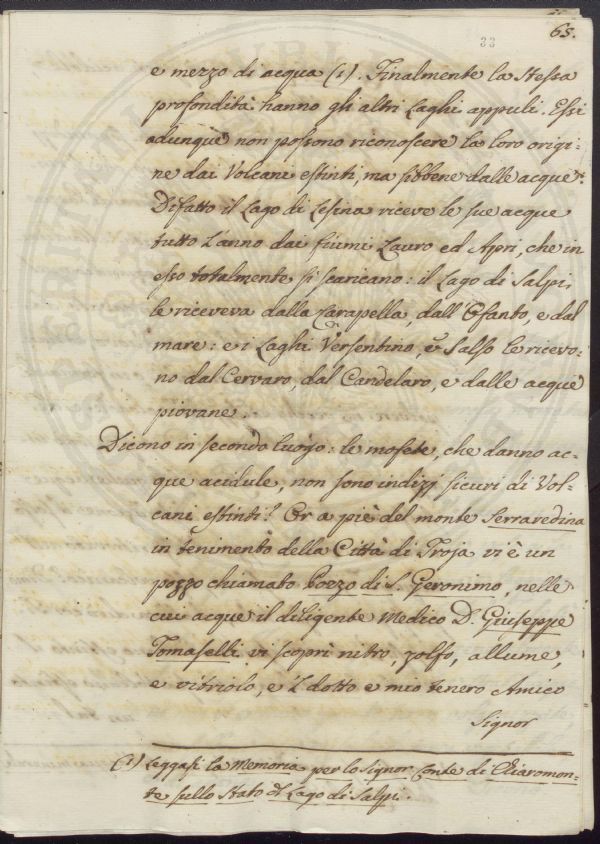 65.
33
e mezzo di acqua (1). Finalmente la stessa
profondità hanno gli altri Laghi appuli. Essi
adunque non possono riconoscere la loro origi-
ne dai Volcani estinti, ma sibbene dalle acque.
Difatto il Lago di Lesina riceve le sue acque
tutto l'anno dai fiumi Lauro ed Apri, che in
esso totalmente si scaricano: il Lago di Salpi,
le riceveva dalla Carapella, dall'Ofanto, e dal
mare: e i Laghi Versentino, e Salso le ricevo-
no dal Cervaro, dal Candelaro, e dalle acque
piovane.
Dicono in secondo luogo: le mofete, che danno ac-
que acidule, non sono indizj sicuri di Vol-
cani estinti? Or a piè del monte Serraredina
in tenimento della Città di Troja vi è un
pozzo chiamato Pozzo di S. Geronimo, nelle
cui acque il diligente Medico D. Giuseppe
Tomaselli vi scoprì nitro, zolfo, allume,
e vitriolo, e 'l dotto e mio tenero Amico
Signor
(1) Leggasi la Memoria per lo Signor Conte di Chiaromon-
te sullo Stato del Lago di Salpi.